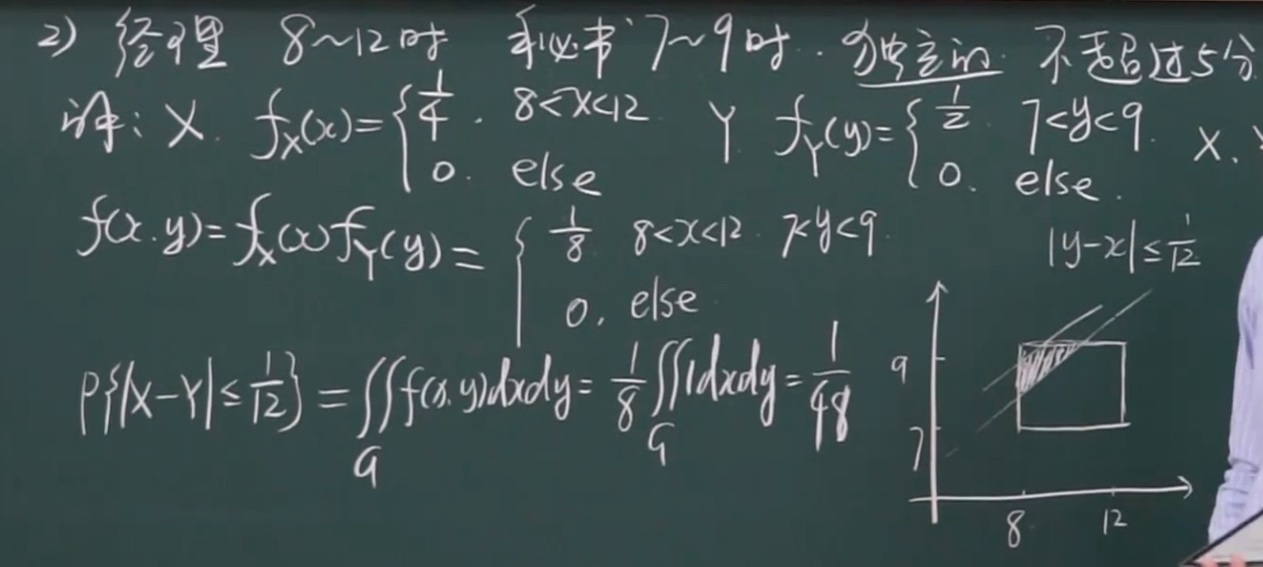 2) 经理 8~12时 和秘书 7~9时. 独立的 不超过5分
解: X. f_X(x)={ 1/4. 8<x<12 Y f_Y(y)={ 1/2 7<y<9. X.
0. else 0. else.
f(x.y)=f_X(x)f_Y(y)={ 1/8 8<x<12 7<y<9 |y-x|≤1/12
0. else
P{|X-Y|≤1/12}=∬_G f(x.y)dxdy=1/8∬_G 1dxdy=1/48
9
7
8 12